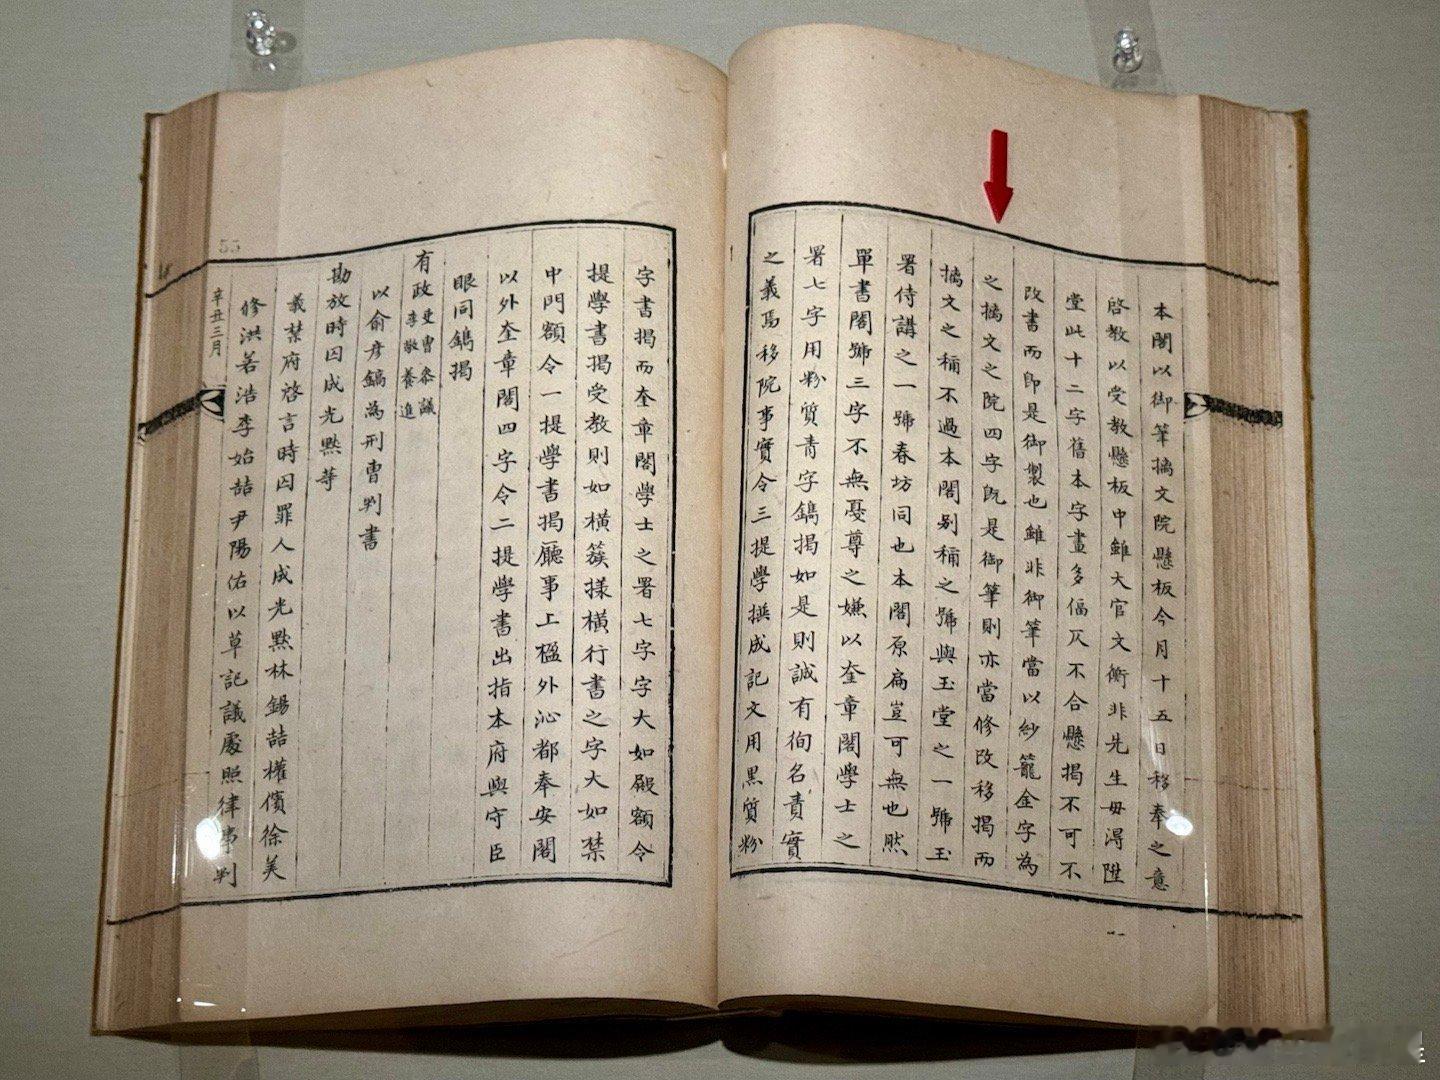 本閣以御筆摛文院懸板今月十五日移奉之意
啓教以受教懸板中雖大官文衡非先生毋淂陞
堂此十二字舊本字畫多偪仄不合懸揭不可不
改書而卽是御製也雖非御筆當以紗籠金字為
之摛文之院四字旣是御筆則亦當修改移揭而
摛文之稱不過本閣别稱之號與玉堂之一號玉
署侍講之一號春坊同也本閣原扁豈可無也然
單書閣號三字不無憂尊之嫌以奎章閣學士之
署七字用粉質青字鐫揭如是則誠有徇名責實
之義焉移院事實令三提學撰成記文用黑質粉
字書揭而奎章閣學士之署七字字大如殿額令
提學書揭受教則如橫簇様橫行書之字大如禁
中門額令一提學書揭廳事上楹外沁都奉安閣
以外奎章閣四字令二提學書出指本府與守臣
眼同鐫揭
有政吏曹叅議李敬養進
以俞彦鎬為刑曹判書
勘放時囚成光黙等
義禁府啓言時囚罪人成光黙林錫喆權儐徐美
修洪若浩李始喆尹陽佑以草記議處照律事判
辛丑三月
55